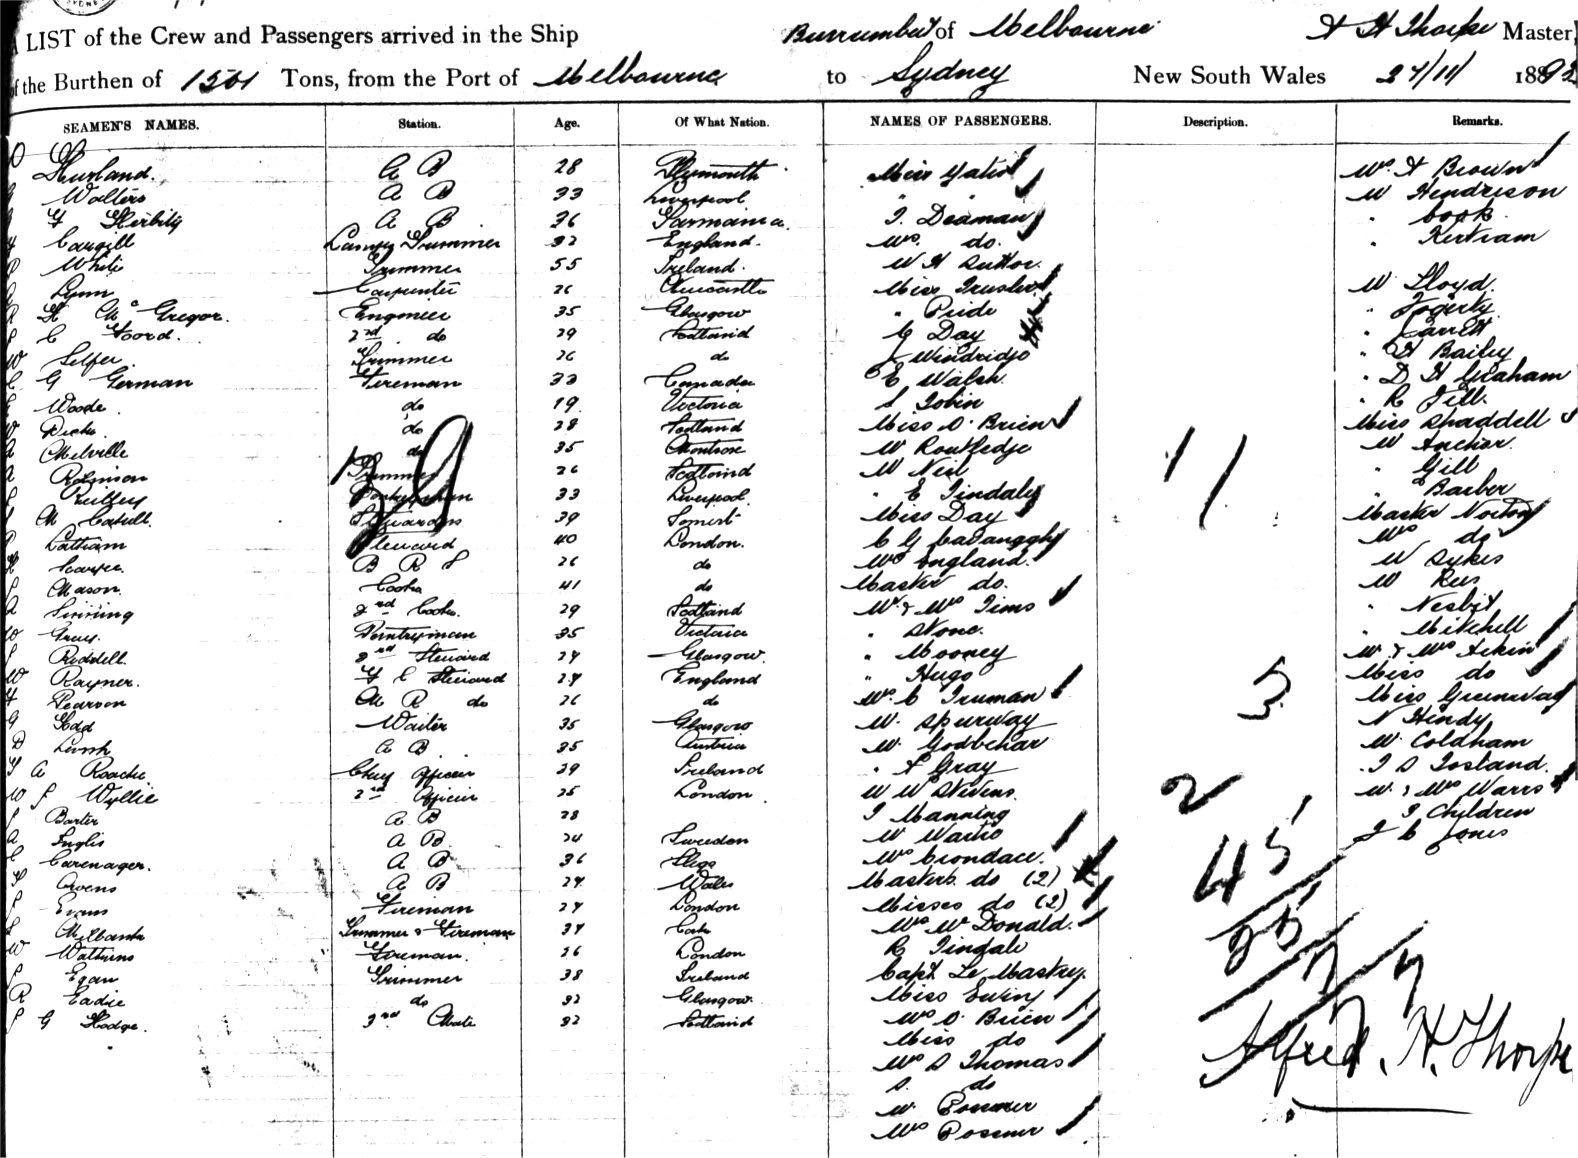 LIST of the Crew and Passengers arrived in the Ship Burrumbeet of Melbourne A H Thorpe Master,
of the Burthen of 1501 Tons, from the Port of Melbourne to Sydney New South Wales 27/11/ 1892
SEAMEN'S NAMES. Station. Age. Of What Nation. NAMES OF PASSENGERS. Description. Remarks.
A B 28 Plymouth Miss Yates Mrs A Brown
Walters A B 33 Liverpool " " W Hendrieson
A B 36 J. Deaman " Cook
Cargill Lamp Trimmer 32 England. Mrs. do. " Kertram
White Trimmer 55 Ireland. W H Suttor.
Lynn Carpenter 26 Newcastle Miss Truslove W Lloyd.
H Mc Gregor. Engineer 35 Glasgow " Pride " Fogerty
C Foord. 2nd do 29 Scotland G Day " Garrett
W Selfer Trimmer 26 do J Windridge " H Bailey
C G German Fireman 33 Canada E Walsh. " D H Graham
Woods do 19 Victoria S Tobin " R Jill.
do 28 Scotland Miss O'Brien Miss Shaddell
Melville do 35 Montrose W Routledge W Anchor
Robinson Trimmer 26 Scotland W Neil " Gill
33 Liverpool " E Tindale " Barber
M Cahill. Stewardess 39 Somerset Miss Day Master Norton
Latham Steward 40 London. C G Cavanaggh Mrs do
B R S 26 do Mrs England. W Sykes
Mason. Cook 41 do Master do. W Rees
2nd Cook. 29 Scotland Mr & Mrs Tims " Nesbit
W Gray. Pantryman 35 Victoria " Stone. " Mitchell
Riddell. 2nd Steward 24 Glasgow. " Mooney Mr & Mrs Aikin
W Rayner. F C Steward 24 England " Hugo Miss do
Pearson M R do 26 do Mrs. C Truman Miss Greenway
G Hadd Waiter 35 Glasgow W. Spurway N Hindy
A B 35 Austria W. Godbehar W. Coldham
A Roache. Chief Officer 29 Ireland " A Gray J S Tosland.
W J Wyllie 2nd Officer 25 London W W Stevens. Mr & Mrs Warrs
Barter A B 28 J Manning 3 Children
Inglis A B 24 Sweden W Waitio J C Jones
Carenager. A B 36 Mrs Crondace.
Owens A B 24 Wales Masters do (2)
Evans Fireman 24 London Misses do (2)
Milbank Trimmer & Fireman 34 Cork Mrs W Donald.
W Watkins Fireman. 26 London R Tindale
Egan Trimmer 38 Ireland Capt Le Mastrey.
R Eadie do 32 Glasgow. Miss Ewing
G Hodge. 3rd Mate 32 Scotland Mrs O'Brien
Miss do
Mrs S Thomas
S. do
W. Possner
Mrs Possner
39
11
5
2
45
77
Alfred. H. Thorpe